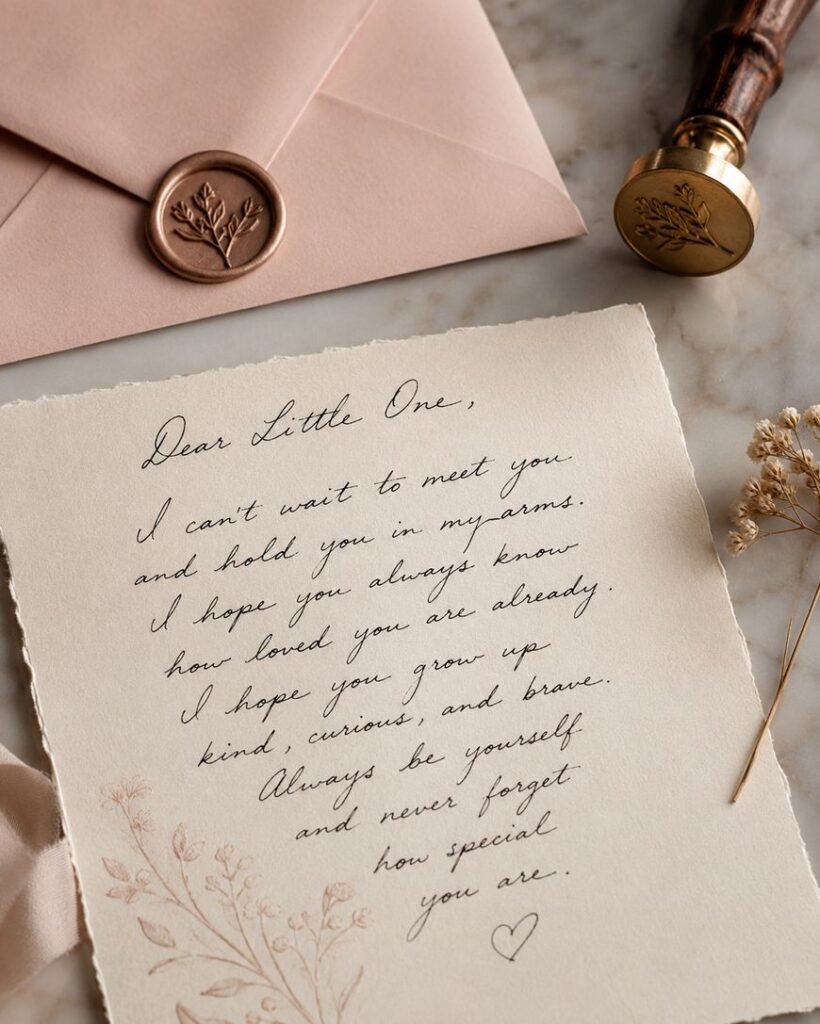 Dear Little One,
I can't wait to meet you
and hold you in my arms.
I hope you always know
how loved you are already.
I hope you grow up
kind, curious, and brave.
Always be yourself
and never forget
how special
you are.